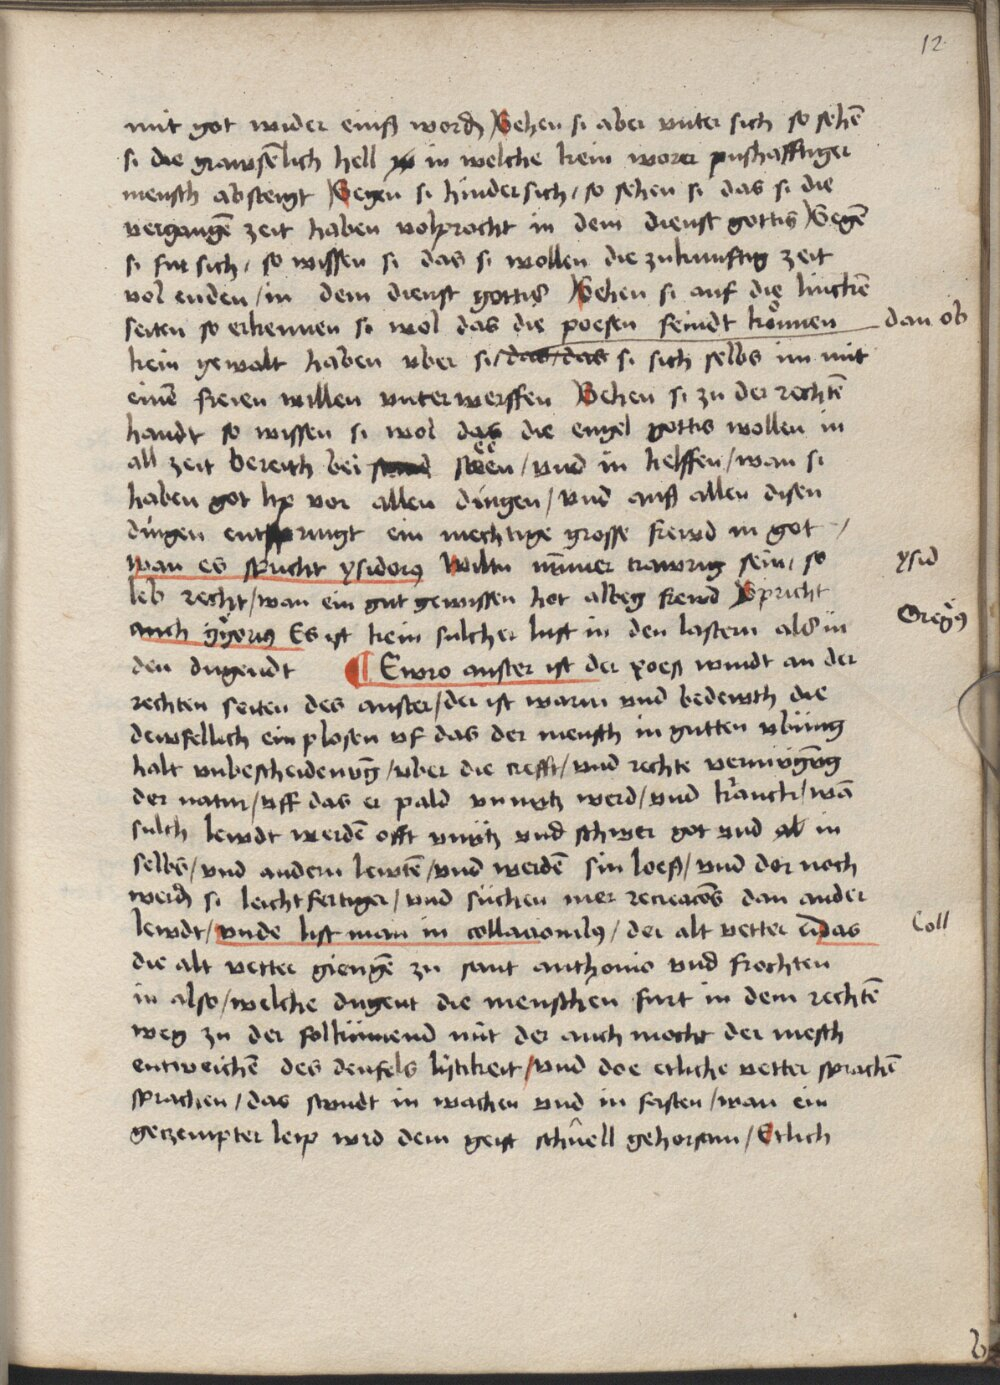 12
mit got wider einß werdn Sehen si aber vnter sich so sehē
si die grawsēlich hell in welche kein worer pußhafftiger
mensch absteigt Segen si hindersich / so sehen si das si die
vergangē zeit haben volpracht in dem dienst gottis Segē
si fur sich / so wissen si das si wollen die zukunftig zeit
vol enden / in dem dienst gottis Sehen si auf die linckē
seiten so erkennen si wol das die poesen feindt können dan ob
kein gewalt haben vber si / das / das si sich selbs im mit
einē freien willen vnterwerffen Sehen si zu der rechtē
handt so wissen si wol das die engel gottis wollen in
all zeit bereith bei steen / vnd in helffen / wan si
haben got lip vor allen dingen / vnd auß allen disen
dingen entspringt ein mechtige grosse frewd in got /
wan es spricht ysidorus Wiltu nimmer trawrig sein / so ysid
leb recht / wan ein gut gewissen hot albeg frewd Spricht
auch Es ist kein sulcher lust in den lastern als in
den dugendt ¶ Ewro auster ist der poeß windt an der
rechten seiten des auster / der ist warm vnd bedewth die
dewfellich ein plosen vf das der mensch in gutten vbung
halt vnbescheidenvḡ / vber die crefft / vnd rechte vermvgvḡ
der natur / vff das er pald vnnutz werd / vnd kranck / wā
sulch lewdt werdē offt vnnutz vnd schwer got vnd in
selbs / vnd andern lewtē / vnd werdē sin loeß / vnd dor noch
werdn si leichtfertiger / vnd suchen mer recreacōs dan ander
lewdt / vnde list man in collacionibus / der alt vetter das Coll
die alt vetter giengē zu sant anthonio vnd frochten
in also / welche dugent die menschen furt in dem rechtē
weg zu der folkumend mit der auch mocht der mesch
entweichē des deufels listikeit / vnd doe etliche vetter sprachē
sprachen / das stundt in wachen vnd in fasten / wan ein
geczempter leip wird dem geist schnell gehorsam / Etlich
b